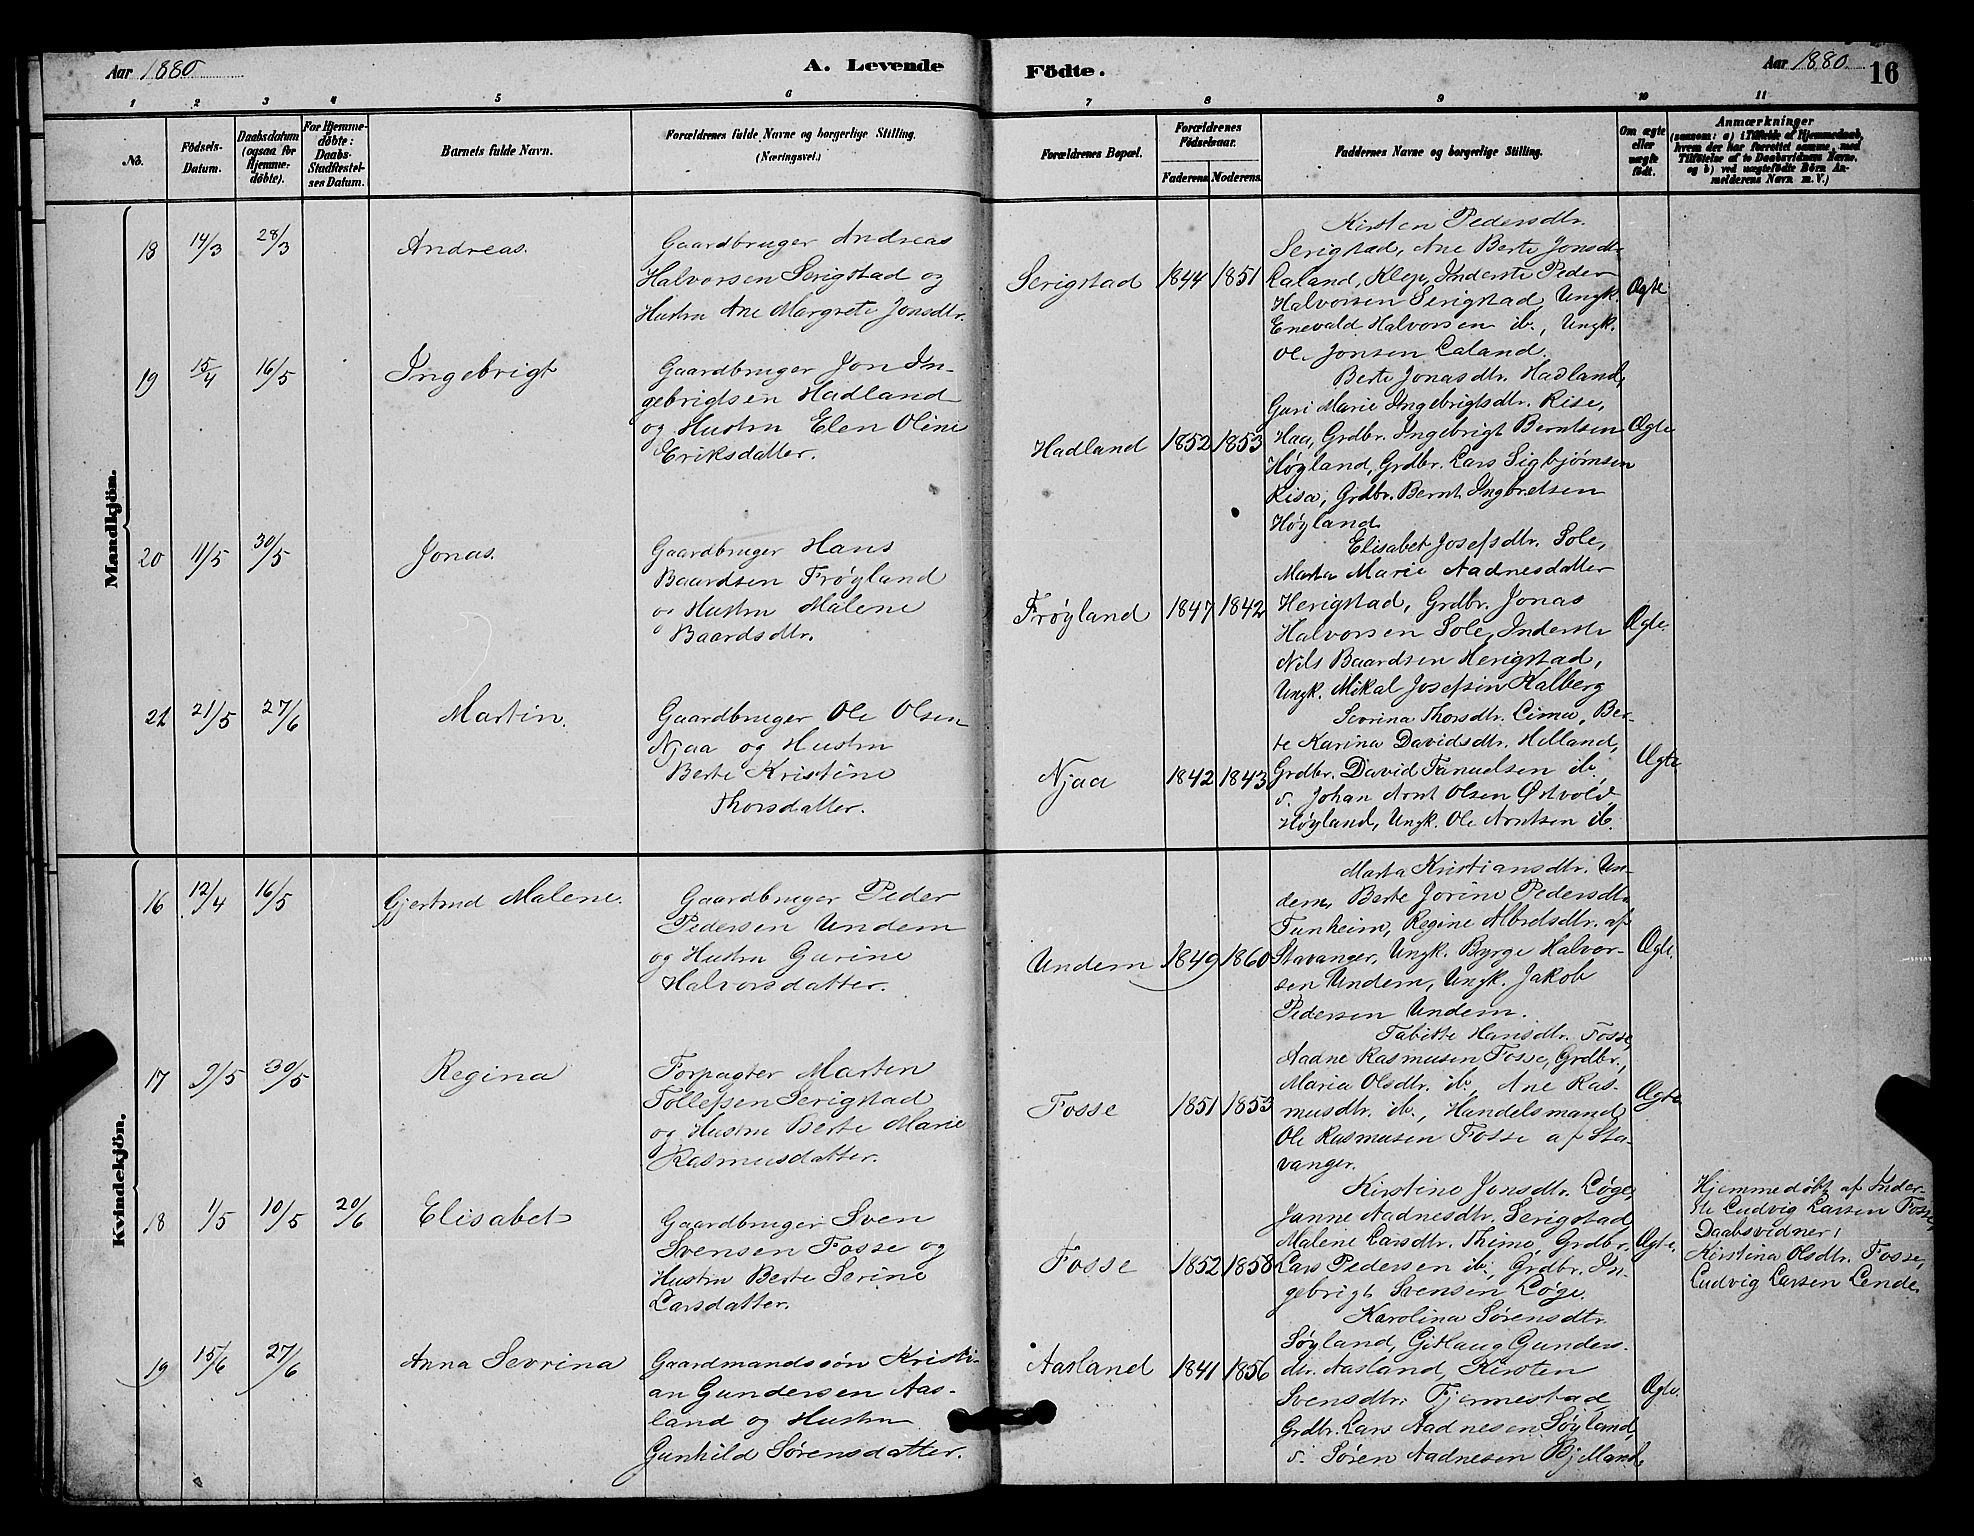 Aar 1880
A. Levende
Födte.
Aar 1880.
16
1 2 3 4 5 6 7 8 9 10 11
No.
Födsels-
Datum.
Daabsdatum
(ogsaa for
Hjemme-
döbte).
For Hjemme-
döbte:
Daabs-
Stadfæstel-
ses Datum.
Barnets fulde Navn.
Forældrenes fulde Navne og borgerlige Stilling.
(Næringsvei.)
Forældrenes Bopæl.
Forældrenes
Födselsaar.
Faderens. Moderens.
Faddernes Navne og borgerlige Stilling.
Om ægte
eller
uægte
födt.
Anmærkninger
(saasom: a) i Tilfælde af Hjemmedaab,
hvem der har forrettet samme, med
Tilföielse af to Daabsvidners Navne,
og b) ved uægtefödte Börn An-
melderens Navn m. V.)
Mandkjön.
18 14/3 28/3 Andreas.
Gaardbruger Andreas
Halvorsen Serigstad og
Hustru Ane Margrete Jonsdtr.
Serigstad 1844 1851
Kirsten Pedersdtr.
Serigstad, Ane Berte Jonsdtr.
Laland, Klep, Inderste Peder
Halvorsen Serigstad, Ungk.
Enevald Halvorsen ib., Ungk.
Ole Jonsen Laland.
Ægte
19 15/4 16/5 Ingebrigt
Gaardbruger Jon In-
gebrigtsen Hadland
og Hustru Elen Oline
Eriksdatter.
Hadland 1852 1853
Berte Jonasdtr. Hadland,
Guri Marie Ingebrigtsdtr. Rise,
Haa, Grdbr. Ingebrigt Berntsen
Høyland, Grdbr. Lars Sigbjørnsen
Risa, Grdbr. Bernt Ingbretsen
Høyland.
Ægte
20 11/5 30/5 Jonas.
Gaardbruger Hans
Baardsen Frøyland
og Hustru Malene
Baardsdtr.
Frøyland 1847 1842
Elisabet Josefsdtr. Sole,
Marta Marie Aadnesdatter
Herigstad, Grdbr. Jonas
Halvorsen Sole, Inderste
Nils Baardsen Herigstad,
Ungk. Mikal Josefsen Kalberg
Ægte.
21 21/5 27/6 Martin.
Gaardbruger Ole Olsen
Njaa og Hustru
Berte Kristine
Thorsdatter.
Njaa 1842 1843
Sevrina Thorsdtr. Lima, Ber-
te Karina Davidsdtr. Helland,
Grdbr. David Tanuelsen ib.,
s. Johan Arnt Olsen Østvold,
Høyland, Ungk. Ole Arntsen ib.
Ægte
Kvindekjön.
16 12/4 16/5 Gjertrud Malene.
Gaardbruger Peder
Pedersen Undem
og Hustru Gurine
Halvorsdatter.
Undem 1849 1860
Marta Kristiansdtr. Un-
dem, Berte Jorine Pedersdtr.
Tunheim, Regine Albretsdtr. af
Stavanger, Ungk. Byrge Halvor-
sen Undem, Ungk. Jakob
Pedersen Undem.
Ægte.
17 9/5 30/5 Regina
Forpagter Marten
Tollefsen Serigstad
og Hustru Berte Marie
Rasmusdatter.
Fosse 1851 1853
Tabitte Hansdtr. Fosse,
Aadne Rasmusen Fosse, Grdbr.,
Maria Olsdtr. ib., Ane Ras-
musdtr. ib., Handelsmand
Ole Rasmusen Fosse af Sta-
vanger.
Ægte
18 1/5 10/5 20/6 Elisabet
Gaardbruger Sven
Svensen Fosse og
Hustru Berte Serine
Larsdatter.
Fosse 1852 1858
Kirstine Jonsdtr. Løge,
Janne Aadnesdtr. Serigstad,
Malene Larsdtr. Thime Grdbr.
Lars Pedersen ib., Grdbr. In-
gebrigt Svensen Løge.
Ægte.
Hjemmedøbt af Inder-
ste Ludvig Larsen Fosse,
Daabsvidner:
Kirstina Olsdtr. Fosse,
Ludvig Larsen Lende.
19 15/6 27/6 Anna Sevrina
Gaardmandssøn Kristi-
an Gundersen Aas-
land og Hustru
Gunhild Sørensdatter.
Aasland 1841 1856
Karolina Sørensdtr.
Søyland, Gitlaug Gunders-
dtr. Aasland, Kirsten
Svensdtr. Fjermestad,
Grdbr. Lars Aadnesen Søyland,
s. Søren Aadnesen Bjelland.
Ægte.